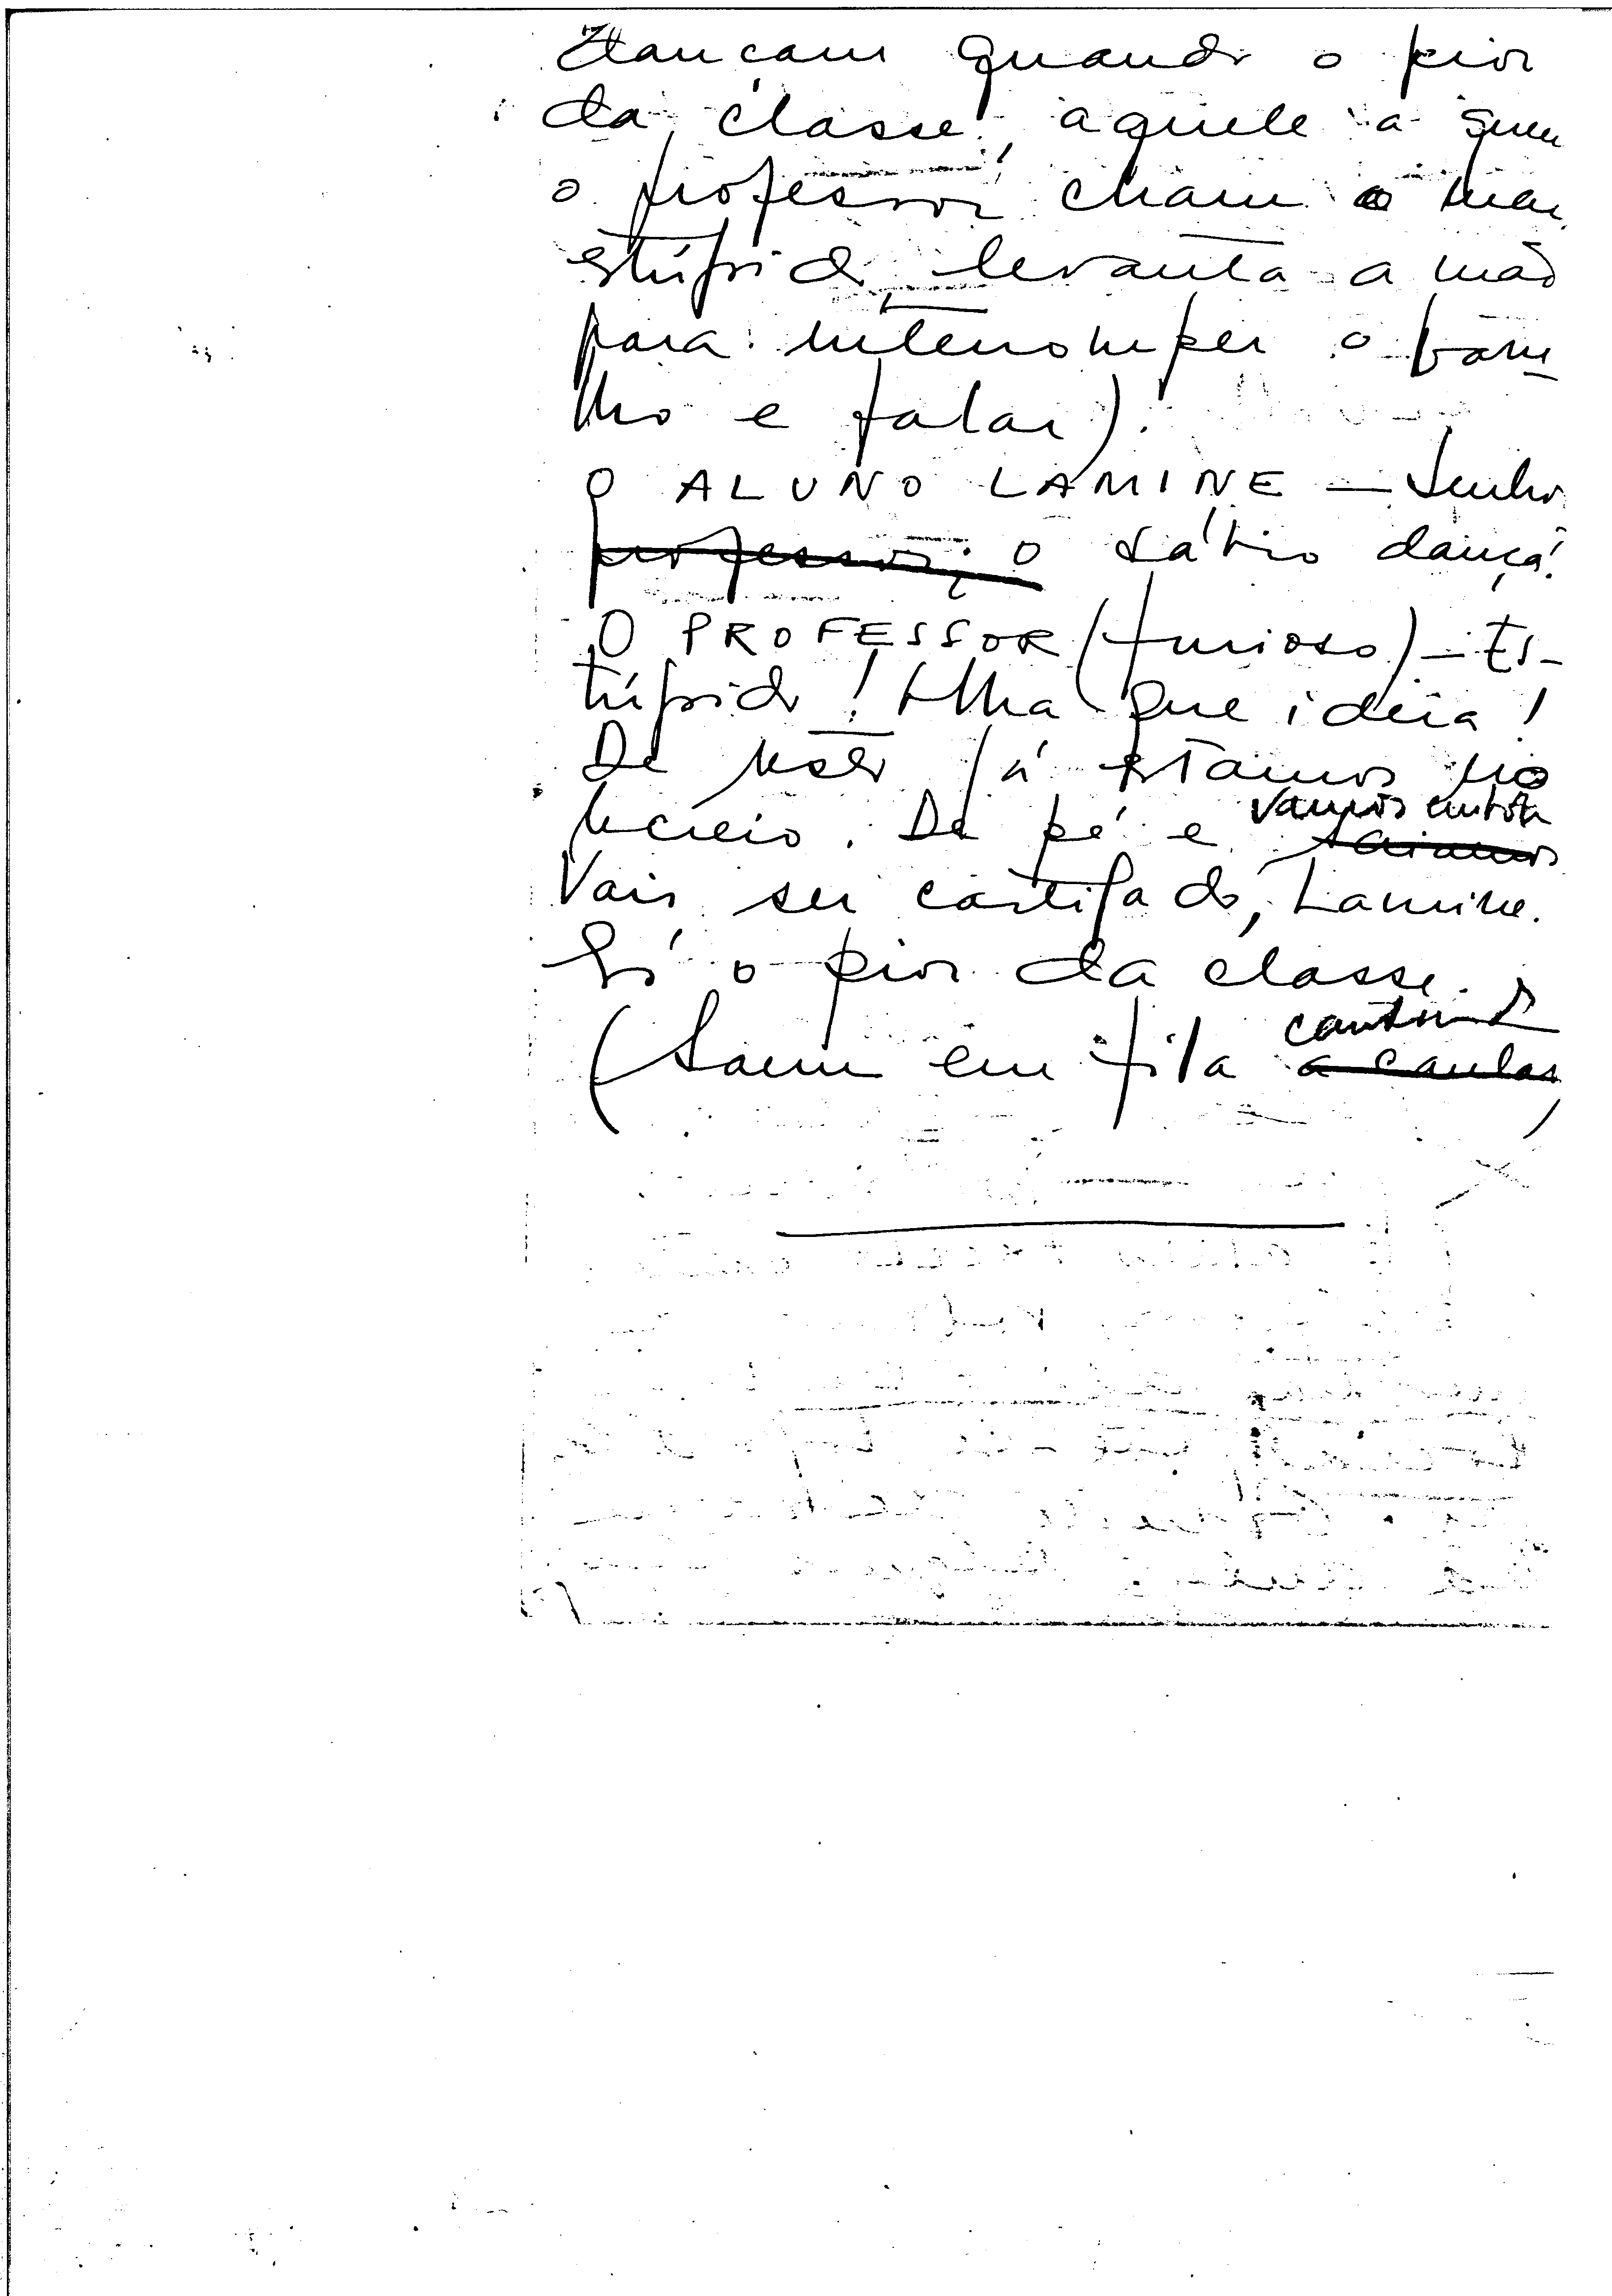 dançam quando o pior
da classe, aquele a quem
o professor chama
estúpido, levanta a mão
para interromper o baru-
lho e falar).
O ALUNO LAMINE — Senhor
professor, o sábio dança!
O PROFESSOR (furioso) — Es-
túpido! Olha que ideia!
De resto já estamos no
recreio. De pé e vamos embora
saiamos
Vais ser castigado, Lamine.
És o pior da classe.
(Saem em fila cantando
a cantar)